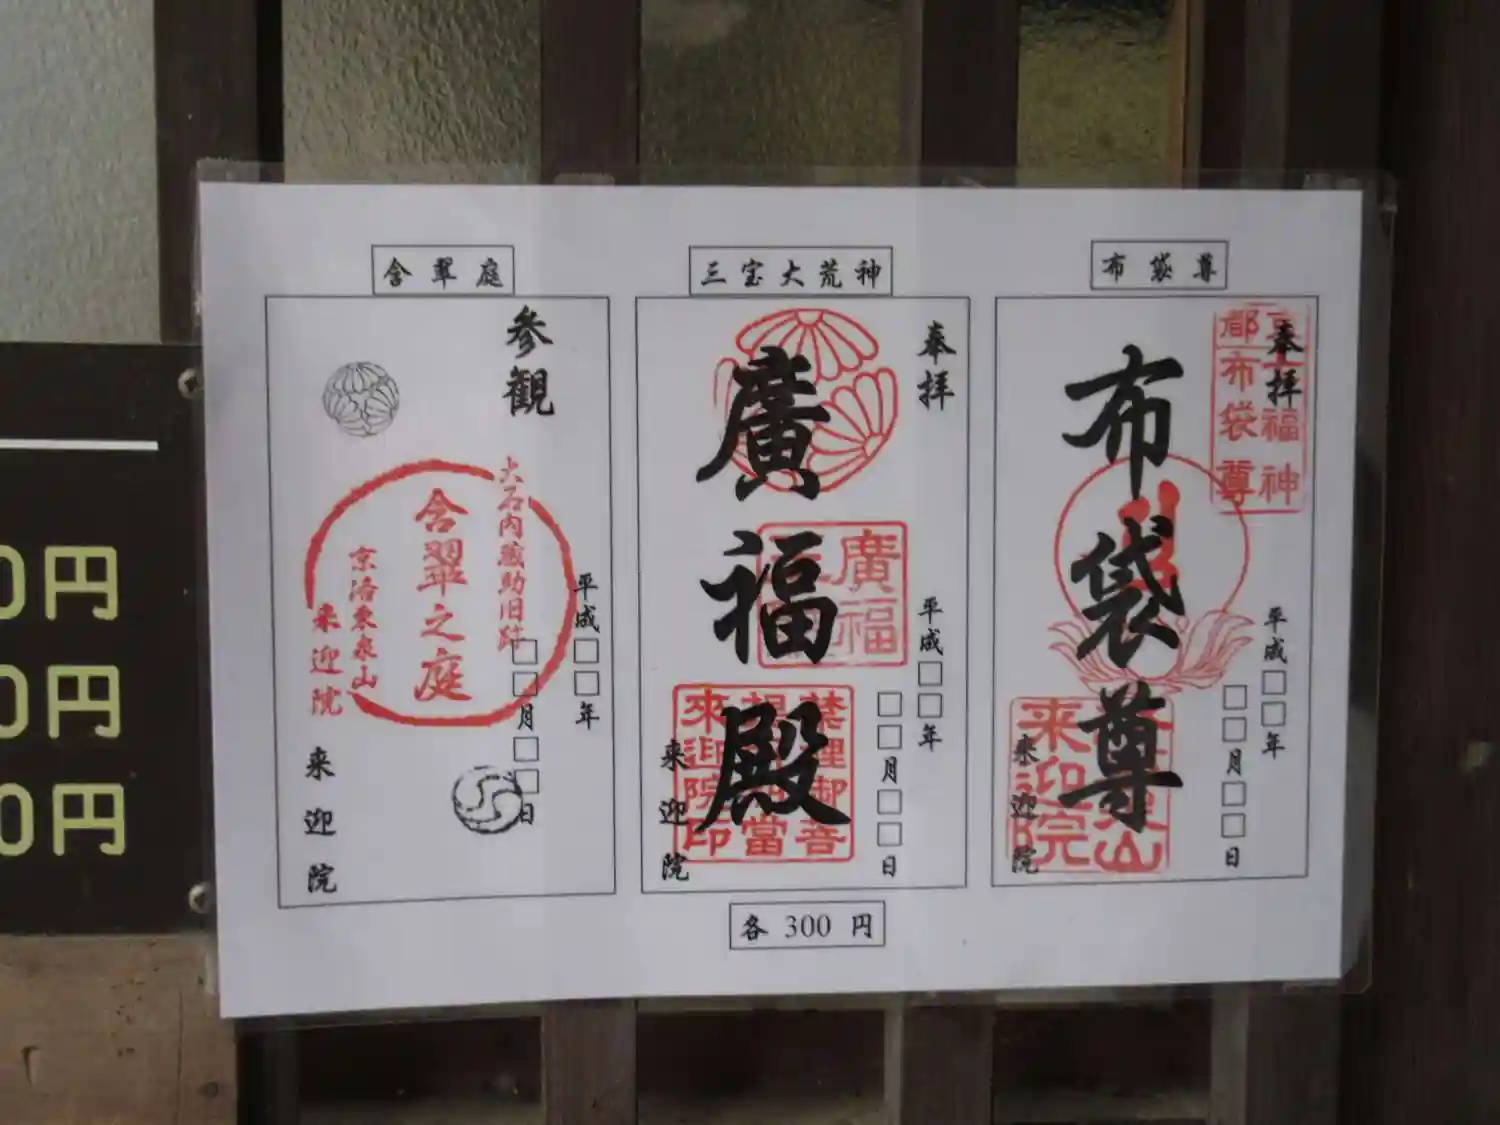 布袋尊
奉拝
布袋尊
都布袋尊
福神
平成□□年
□□月□□日
来迎院
来迎院
三宝大荒神
奉拝
廣福殿
廣福
平成□□年
□□月□□日
来迎院
禁裡御菩
來迎院印
含翠庭
参観
大石内蔵助旧跡
含翠之庭
京洛東泉山
来迎院
平成□□年
□□月□□日
来迎院
各300円
0円
0円
0円